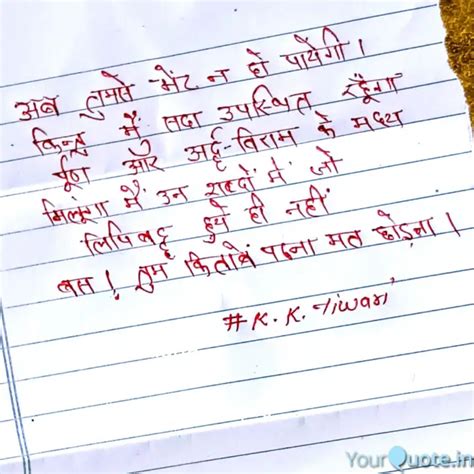 अब तुमसे भेंट न हो पायेगी।
किन्तु मैं सदा उपस्थित रहूँगा
पूर्ण और अर्द्ध-विराम के मध्य
मिलूंगा मैं उन शब्दों में जो
लिपिबद्ध हुये ही नहीं
बस! तुम किताबें पढ़ना मत छोड़ना।
#K.K.Tiwari
YourQuote.in